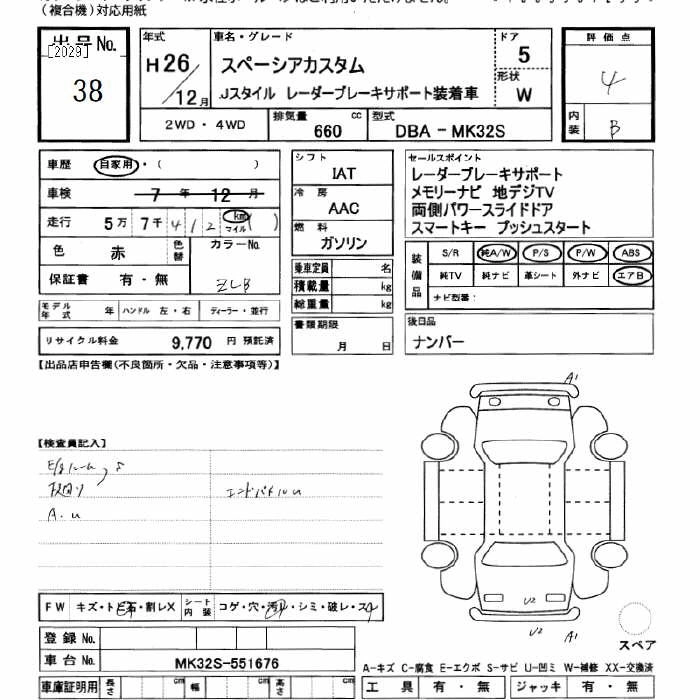 (複合機)対応用紙
出品No.
[2029]
38
年式
H26/12月
車名・グレード
スペーシアカスタム
.Jスタイル レーダーブレーキサポート装着車
ドア
5
形状
W
評価点
4
内装
B
2WD・4WD
排気量 660 cc
型式 DBA-MK32S
車歴 自家用・( )
車検 7年 12月
走行 5万 7千 412 km マイル ( )
色 赤 色替 カラーNo.
保証書 有・無 ZLB
モデル年式 年 ハンドル 左・右 ディーラー・並行
リサイクル料金 9,770 円 預託済
シフト
IAT
冷房
AAC
燃料
ガソリン
乗車定員 名
積載量 kg
総重量 kg
書類期限
月 日
セールスポイント
レーダーブレーキサポート
メモリーナビ 地デジTV
両側パワースライドドア
スマートキー プッシュスタート
装備品
S/R 純A/W P/S P/W ABS
純TV 純ナビ 革シート 外ナビ エアB
ナビ型番:
後日品
ナンバー
【出品店申告欄(不良箇所・欠品・注意事項等)】
【検査員記入】
A.U
エンドパネルU
A1
U2
U2 A1
スペア
FW キズ・トビ石・割レX シート内装 コゲ・穴・汚レ・シミ・破レ・スレ
登録No.
車台No. MK32S-551676
車庫証明用 長さ cm 幅 cm 高さ cm
A-キズ C-腐食 E-エクボ S-サビ U-凹ミ W-補修 XX-交換済
工具 有・無 ジャッキ 有・無